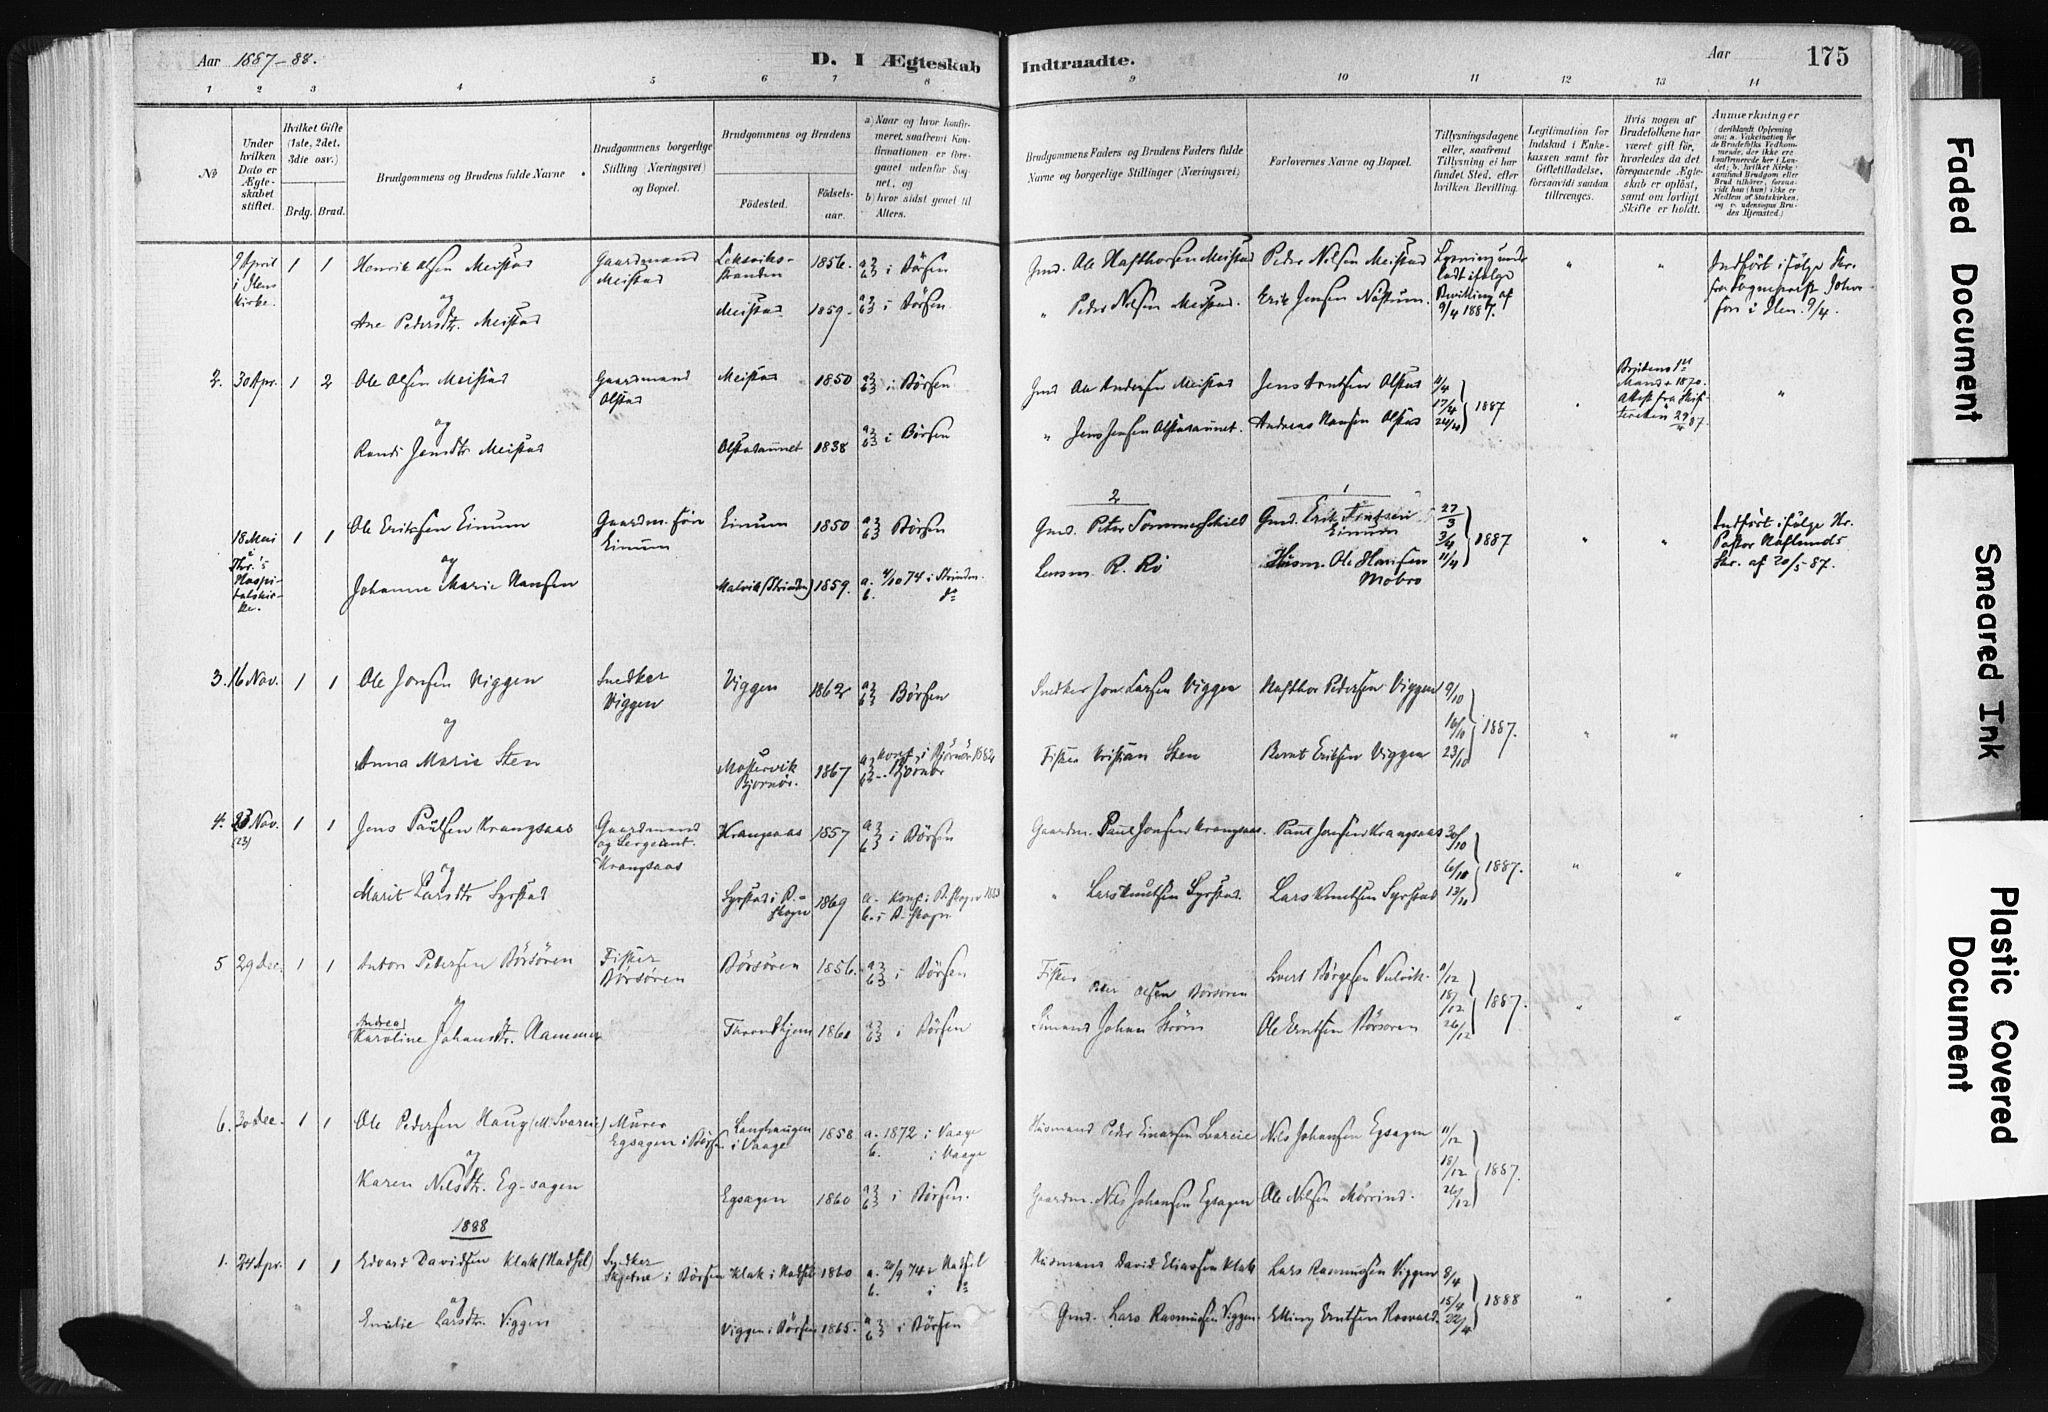 Aar 1887-88.
D. I Ægteskab
Indtraadte.
Aar
175
1 2 3 4 5 6 7 8 9 10 11 12 13 14
No
Under hvilken Dato er Ægteskabet stiftet.
Hvilket Gifte (1ste, 2det. 3die osv.)
Brdg. Brud.
Brudgommens og Brudens fulde Navne
Brudgommens borgerlige Stilling (Næringsvei) og Bopæl.
Brudgommens og Brudens
Fødested.
Fødsels-aar.
a) Naar og hvor konfirmeret, saafremt Konfirmationen er foregaaet udenfor Sognet, og
b) hvor sidst gaaet til Alters.
Brudgommens Faders og Brudens Faders fulde Navne og borgerlige Stillinger (Næringsvei)
Forlovernes Navne og Bopæl.
Tillysningsdagene eller, saafremt Tillysning ei har fundet Sted, efter hvilken Bevilling.
Legitimation for Indskud i Enkekassen samt for Giftetilladelse, forsaavidt saadan tiltrænges.
Hvis nogen af Brudefolkene har været gift før, hvorledes da det foregaaende Ægteskab er opløst, samt om lovligt Skifte er holdt.
Anmærkninger
9 April i Ilens Kirke. 1 1 Henrik Olsen Meistad Gaardmand Meistad Leksviks-stranden 1856. a b i Börsen
og
Ane Pedersdtr. Meistad Meistad 1859. a b i Börsen
Gmd. Ole Hafthorsen Meistad Peder Nilsen Meistad Lysning undladt ifølge Bevilling af 9/4 1887. " " Indført i følge Skr. fra Sogneprest i Ilen. 9/4.
" Peder Nilsen Meistad. Erik Jensen Nastum.
2. 30 Apr. 1 2 Ole Olsen Meistad Gaardmand Olstad Meistad 1850 a b i Börsen
og
Randi Jensdtr Meistad Olstadaunet 1838 a b i Börsen
Gmd Ole Andersen Meistad Jens Arntsen Olstad 11/4 17/4 24/4 1887 Brudens 1ste Mand + 1870. Attest fra Skifteretten 29/4 87. "
" Jens Jensen Olstadaunet. Andreas Hansen Olstad
18 Mai i Thr.'s Hospitalskirke. 1 1 Ole Eriksen Einum Gaardm. søn Einum Einum 1850 a b Börsen
og
Johanne Marie Hansen Malvik (Strinden) 1859. a. 4/10 74 i Strinden. b. do
2 1
Gmd. Peter Sommerschild Gmd. Erik Einum 27/3 3/4 11/4 1887 " " Indført i følge Hr. Pastor Skr. af 20/5 87.
Lensm. R. Ro Husm. Ole Hansen Mobro
3. 16 Nov. 1 1 Ole Jonsen Viggen Snedker Viggen Viggen 1862 a b Börsen
og
Anna Marie Sten Bjørnör. 1867 a konf. i Bjørnör 1882 b Bjørnör
Snedker Jon Larsen Viggen Hafthor Pedersen Viggen 9/10 16/10 23/10 1887. " "
Fisker Kristian Sten Bernt Eriksen Viggen
4. 23 Nov. (23) 1 1 Jens Paulsen Krangsaas Gaardmand og Sergeant. Krangsaas Krangsaas 1857 a b i Börsen
og
Marit Larsdtr Syrstad Syrstad i B.-skogn 1869 a. Konf. i B.skogn 1883 b. i B-skogn.
Gaardm. Paul Jonsen Krangsaas. Paul Jonsen Krangsaas 30/10 6/11 13/11 1887. " "
" Lars Knutsen Syrstad. Lars Knutsen Syrstad
5 29 Dec. 1 1 Anton Petersen Börsören Fisker Börsören Börsören 1856. a b i Börsen
og
Andrea Karoline Johansdtr. Hammer Trondhjem 1860 a b i Börsen
Fisker Peter Olsen Börsören Evert Börgesen Vulvik. 11/12 18/12 26/12 1887. " "
Johan Ström Ole Erntsen Börsören
6. 30 Dec. 1 1 Ole Pedersen Haug (M. Svareie) Murer Egsagen i Börsen Langhaugen i Vaage 1858 a. 1872 i Vaage b. i Vaage
og
Karen Nilsdtr. Eg-sagen Egsagen 1860 a b i Börsen.
Husmand Peder Einarsen Svareie Nils Johansen Egsagen 11/12 18/12 26/12 1887.
Gaardm. Nils Johansen Egsagen Ole Nilsen Mörrind.
1888
1. 24 Apr. 1 1 Edvard Davidsen Klak (Hadsel) Snedker Skjetne i Börsen Klak i Hadsel 1860 a. 20/9 74 i Hadsel b. i do
og
Emilie Larsdtr. Viggen Viggen i Börsen 1865. a b i Börsen
Husmand David Eliassen Klak Lars Rasmussen Viggen 8/4 15/4 22/4 1888 " "
Gmd. Lars Rasmussen Viggen Elling Erntsen Rosvald.
Faded Document
Smeared Ink
Plastic Covered Document